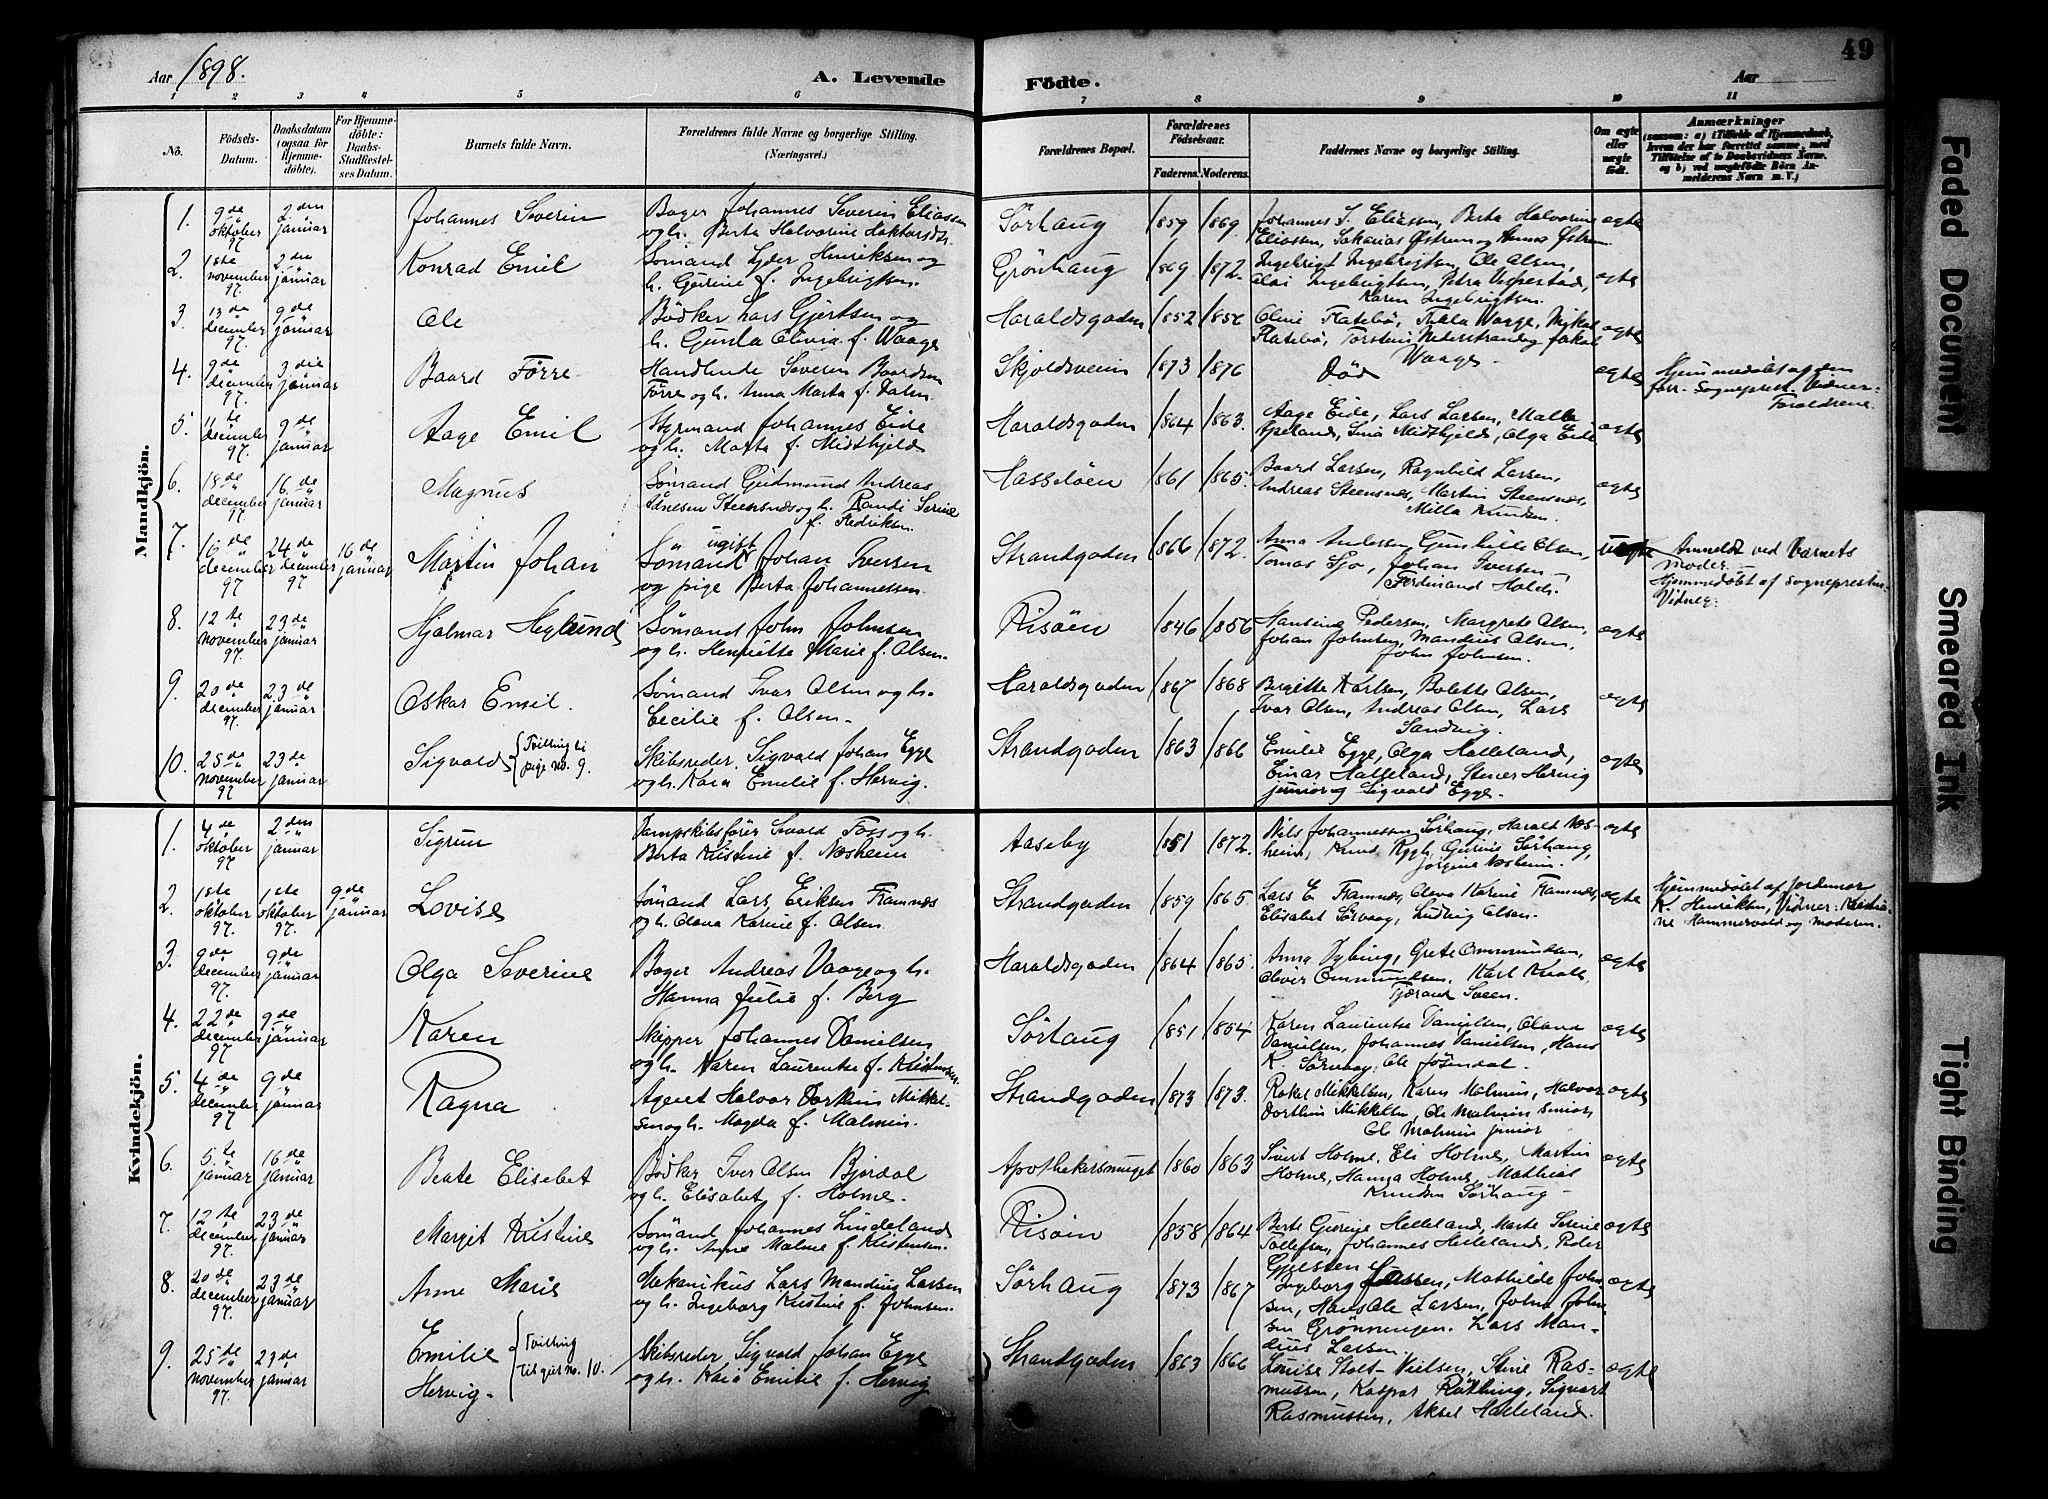 Aar 1898.
A. Levende
Födte.
Aar
49
1 2 3 4 5 6 7 8 9 10 11
No.
Födsels-
Datum.
Daabsdatum
(ogsaa för
Hjemme-
döbte).
For Hjemme-
döbte:
Daabs-
Stadfæstel-
ses Datum.
Barnets fulde Navn.
Forældrenes fulde Navne og borgerlige Stilling.
(Næringsvei.)
Forældrenes Bopæl.
Forældrenes
Födselsaar.
Faderens. Moderens.
Faddernes Navne og borgerlige Stilling.
Om ægte
eller
uægte
født.
Anmærkninger
(saasom: a) i Tilfælde af Hjemmedaab,
hvem der har forrettet samme, med
Tilføielse af to Daabsvidners Navne,
og b) ved uægtefødte Börn An-
melderens Navn m. V.)
Mandkjön.
1. 9de oktober 97. 2den januar Johannes Severin Bager Johannes Severin Eliassen
og h. Berta Halvorine Haktorsdtr. Sörhaug 1859 1869 Johannes S. Eliassen, Berta Halvorine
Eliassen, Sakarias Østrem og Østrem ægte
2. 1ste november 97. 2den januar Konrad Emil Sömand Lyder Henriksen og
h. Gurine f. Ingebrigtsen. Grönhaug 1869 1872. Ingebrigt Ingebrigtsen, Ole Olsen,
Ingebrigtsen, Petra Vespestad,
Karen Ingebrigtsen. ægte
3. 13de december 97. 9de januar Ole Bödker Lars Gjertsen og
h. Gunla Olivia f. Waage Haraldsgaden 1852 1856 Oline Flatebö, Tekla Waage, Mikal
Flatebö, Torstein Nederstrand og Jakob
Waage. ægte
4. 9de december 97. 3die januar Baard Förre Handlende Severin Baardsen
Förre og h. Anna Marta f. Dalen Skjoldsveien 1873 1876 Död ægte Hjemmedöbt af den
forr. Sogneprest. Vidner:
Forældrene.
5. 11te december 97. 9de januar Aage Emil Styrmand Johannes Eide
og h. Marta f. Midthjeld Haraldsgaden 1864 1863. Aage Eide, Lars Larsen, Malla
Apeland, Sina Midthjeld, Olga Eide ægte
6. 18de december 97. 16de januar Magnus Sömand Gudmund Andreas
Steensnæs og h. Randi Serine
f. Fredriksen. Hasselöen 1861 1865. Baard Larsen, Ragnhild Larsen,
Andreas Steensnes, Martin Steensnæs,
Milla Knudsen. ægte
7. 16de december 97 24de december 97 16de januar Martin Johan ugift
Sömand Johan Iversen
og pige Berta Johannessen. Strandgaden 1866 1872. Anna Andersen, Gunhilde Olsen,
Tomas Sjo, Johan Iversen,
Ferdinand Holch. Uægte Anmeldt ved barnets
moder.
Hjemmedöbt af sognepresten.
Vidner:
8. 12te november 97. 23de januar Hjalmar Heglund Sömand John Johnsen
og h. Henriette Marie f. Olsen. Risöen 1846 1856 Hansine Pedersen, Margrete Olsen,
Johan Johnsen, Mandius Olsen,
John Johnsen. ægte
9. 20de december 97. 23de januar Oskar Emil. Sömand Ivar Olsen og h.
Cecilie f. Olsen. Haraldsgaden 1867 1868 Birgitte Karlsen, Bolette Olsen,
Ivar Olsen, Andreas Olsen, Lars
Sandvig. ægte
10. 25de november 97 23de januar Sigvald Tvilling til
pige no. 9. Skibsreder Sigvald Johan Egge
og h. Kaia Emilie f. Hervig. Strandgaden 1863 1866 Emilie Egge, Olga Halleland,
Einar Halleland, Stener Hervig
junior og Sigvald Egge. ægte
Kvindekjön.
1. 4de oktober 97. 2den januar Sigrun Dampskibsförer Sevald Foss og h.
Berta Kristine f. Næsheim Aaseby 1851 1872. Nils Johannessen Sörhaug, Harald Næs-
heim, Knud Rygh, Gurine Sörhaug,
Jorgine Næsheim. ægte
2. 1ste oktober 97. 1ste oktober 97. 9de januar Lovise Sömand Lars Eriksen Framnæs
og h. Olava Karine f. Olsen. Strandgaden 1859 1865 Lars E. Framnæs, Olava Karine Framnæs,
Elisabet Sörvaag, Ludvig Olsen. ægte Hjemmedöbt af jordemor
K. Henriksen, Vidner: Kristia-
ne Hammervold og moderen.
3. 9de december 97. 9de januar Olga Severine Bager Andreas Vaage og h.
Hanna Julie f. Berg Haraldsgaden 1864 1865. Anna Dybing, Grete Ommundsen,
Oliver Ommundsen, Karl
Tjerand Sveen. ægte
4. 22de december 97. 9de januar Karen Skipper Johannes Danielsen
og h. Karen Laurentse f. Kristensen. Sörhaug 1851 1854 Karen Laurentse Danielsen, Olana
Danielsen, Johannes Danielsen, Hans
K. Sörvaag, Ole Jösendal. ægte
5. 4de december 97. 9de januar Ragna Agent Halvor Dorthin Mikkel-
sen og h. Magda f. Malmin. Strandgaden 1873 1873. Rakel Mikkelsen, Karen Malmin, Halvor
Dorthin Mikkelsen, Ole Malmin senior,
Ole Malmin junior ægte
6. 5te januar 16de januar Beate Elisabet Bödker Iver Olsen Bjordal
og h. Elisabet f. Holme. Apothekersmuget 1860 1863 Sivert Holme, Eli Holme, Martin
Holme, Hanna Holme, Mathias
Knudsen Sörhaug ægte
7. 12te december 97. 23de januar Margit Kristine Sömand Johannes Lindeland
og h. Anne Malene f. Kristensen. Risöen 1858 1864 Berte Gurine Helleland, Marte Serine
Tollefsen, Johannes Helleland, Peder
Gjesten ægte
8. 20de december 97. 23de januar Anne Marie Mekanikus Lars Mandius Larsen
og h. Ingeborg Kristine f. Johnsen. Sörhaug 1873 1867 Ingeborg Larsen, Mathilde John-
sen, Hans Ole Larsen, John John-
sen Grönningen. Lars Man-
dius Larsen ægte
9. 25de november 97. 23de januar Emilie
Hervig. Tvilling
til gut no. 10. Skibsreder Sigvald Johan Egge
og h. Kaia Emilie f. Hervig Strandgaden 1863 1866 Louise Stolt-Nielsen, Stine Ras-
mussen, Kaspar Röthing, Sigvart
Rasmussen, Aksel Halleland. ægte
Faded Document
Smeared Ink
Tight Binding